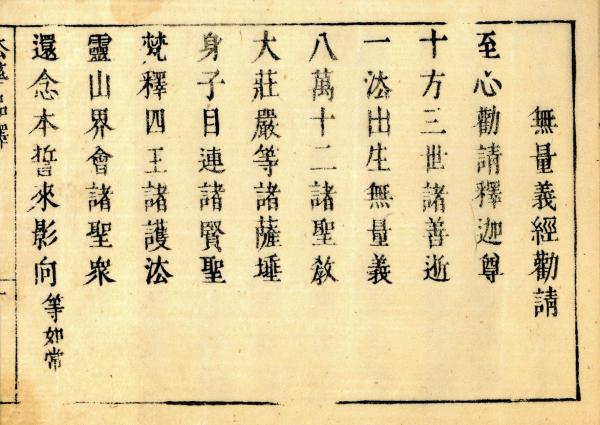 無量義經勸請
至心勸請釋迦尊
十方三世諸善逝
一法出生無量義
八萬十二諸聖教
大莊嚴等諸薩埵
身子目連諸賢聖
梵釋四王諸護法
靈山界會諸聖衆
還念本誓來影向等如常